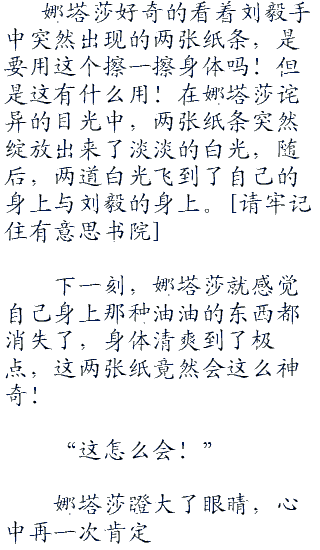 娜塔莎好奇的看着刘毅手
中突然出现的两张纸条，是
要用这个擦一擦身体吗！但
是这有什么用！在娜塔莎诧
异的目光中，两张纸条突然
绽放出来了淡淡的白光，随
后，两道白光飞到了自己的
身上与刘毅的身上。[请牢记
住有意思书院]
下一刻，娜塔莎就感觉
自己身上那种油油的东西都
消失了，身体清爽到了极
点，这两张纸竟然会这么神
奇！
“这怎么会！”
娜塔莎瞪大了眼睛，心
中再一次肯定